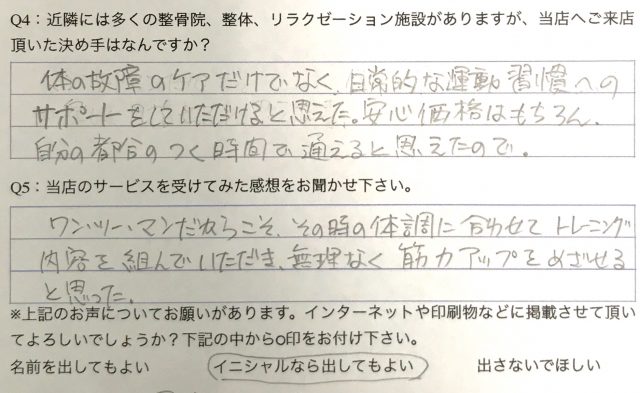 Q4：近隣には多くの整骨院、整体、リラクゼーション施設がありますが、当店へご来店
頂いた決め手はなんですか？
体の故障のケアだけでなく、日常的な運動習慣への
サポートをしていただけると思えた。安心価格はもちろん、
自分の都合のつく時間で通えると思えたので。
Q5：当店のサービスを受けてみた感想をお聞かせ下さい。
ワン・ツー・マンだからこそ、その時の体調に合わせてトレーニング
内容を組んでいただき、無理なく筋力アップをめざせる
と思った。
※上記のお声についてお願いがあります。インターネットや印刷物などに掲載させて頂い
てよろしいでしょうか？下記の中からo印をお付け下さい。
名前を出してもよい イニシャルなら出してもよい 出さないでほしい